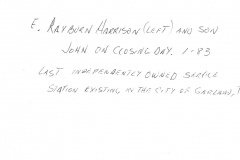 E. RAYBURN HARRISON (LEFT) AND SON
JOHN ON CLOSING DAY. 1-83
LAST INDEPENDENTLY OWNED SERVICE
STATION EXISTING IN THE CITY OF GARLAND,